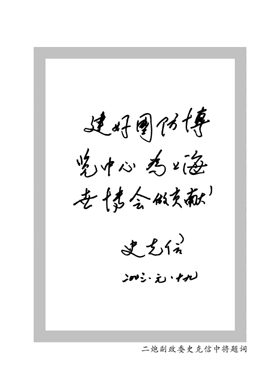 建好国防博
览中心为上海
世博会做贡献
史克信
二〇〇三·元·十九
二炮副政委史克信中将题词